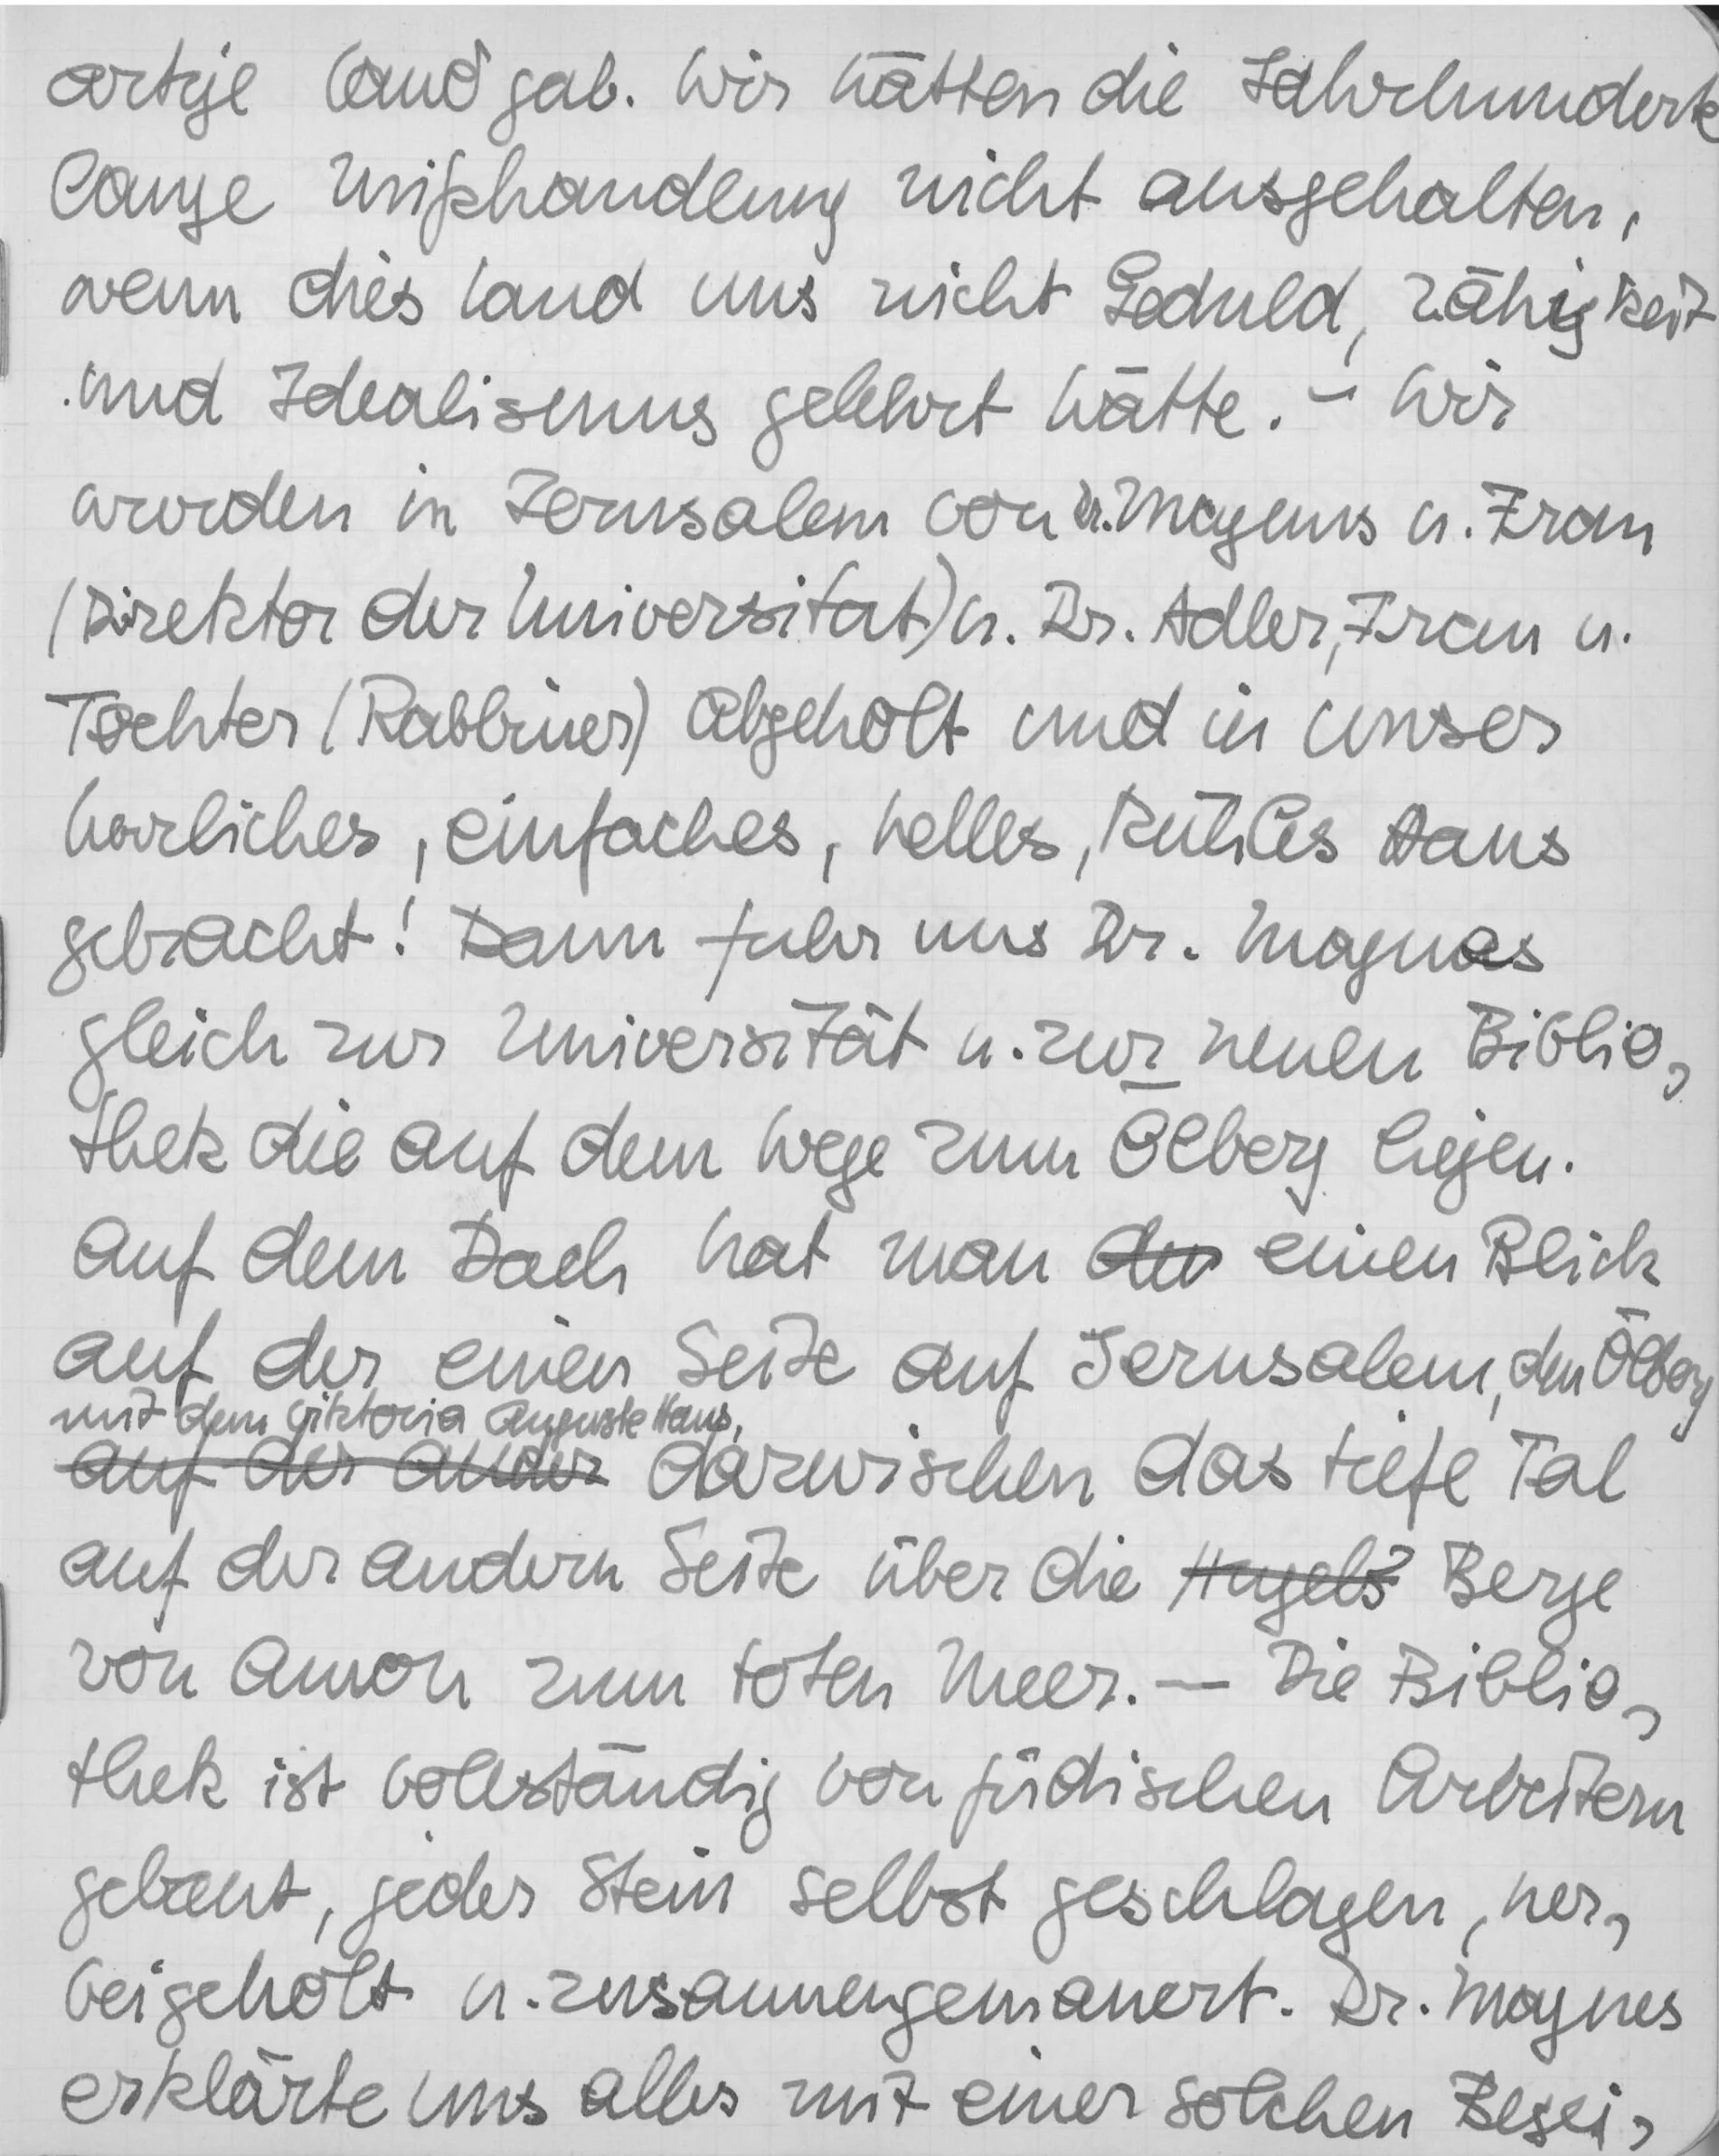 artige Land gab. Wir hätten die Jahrhunderte
lange Mißhandlung nicht ausgehalten,
wenn dies Land uns nicht Geduld, Zähigkeit
und Idealismus gelehrt hätte. – Wir
wurden in Jerusalem von Dr. Magnus u. Frau
(Direktor der Universität) u. Dr. Adler, Frau u.
Tochter (Rabbiner) abgeholt und in unser
herrliches, einfaches, helles, kühles Haus
gebracht! Dann fuhr uns Dr. Magnes
gleich zur Universität u. zur neuen Biblio,
thek die auf dem Wege zum Ölberg liegen.
Auf dem Dach hat man den einen Blick
auf der einen Seite auf Jerusalem, den Ölberg
mit dem Viktoria Auguste Haus,
auf der ander dazwischen das tiefe Tal
auf der andern Seite über die Hugels Berge
von Amon zum toten Meer. — Die Biblio,
thek ist vollständig von jüdischen Arbeitern
gebaut, jeder Stein selbst geschlagen, her,
beigeholt u. zusammengemauert. Dr. Magnes
erklärte uns alles mit einer solchen Begei,